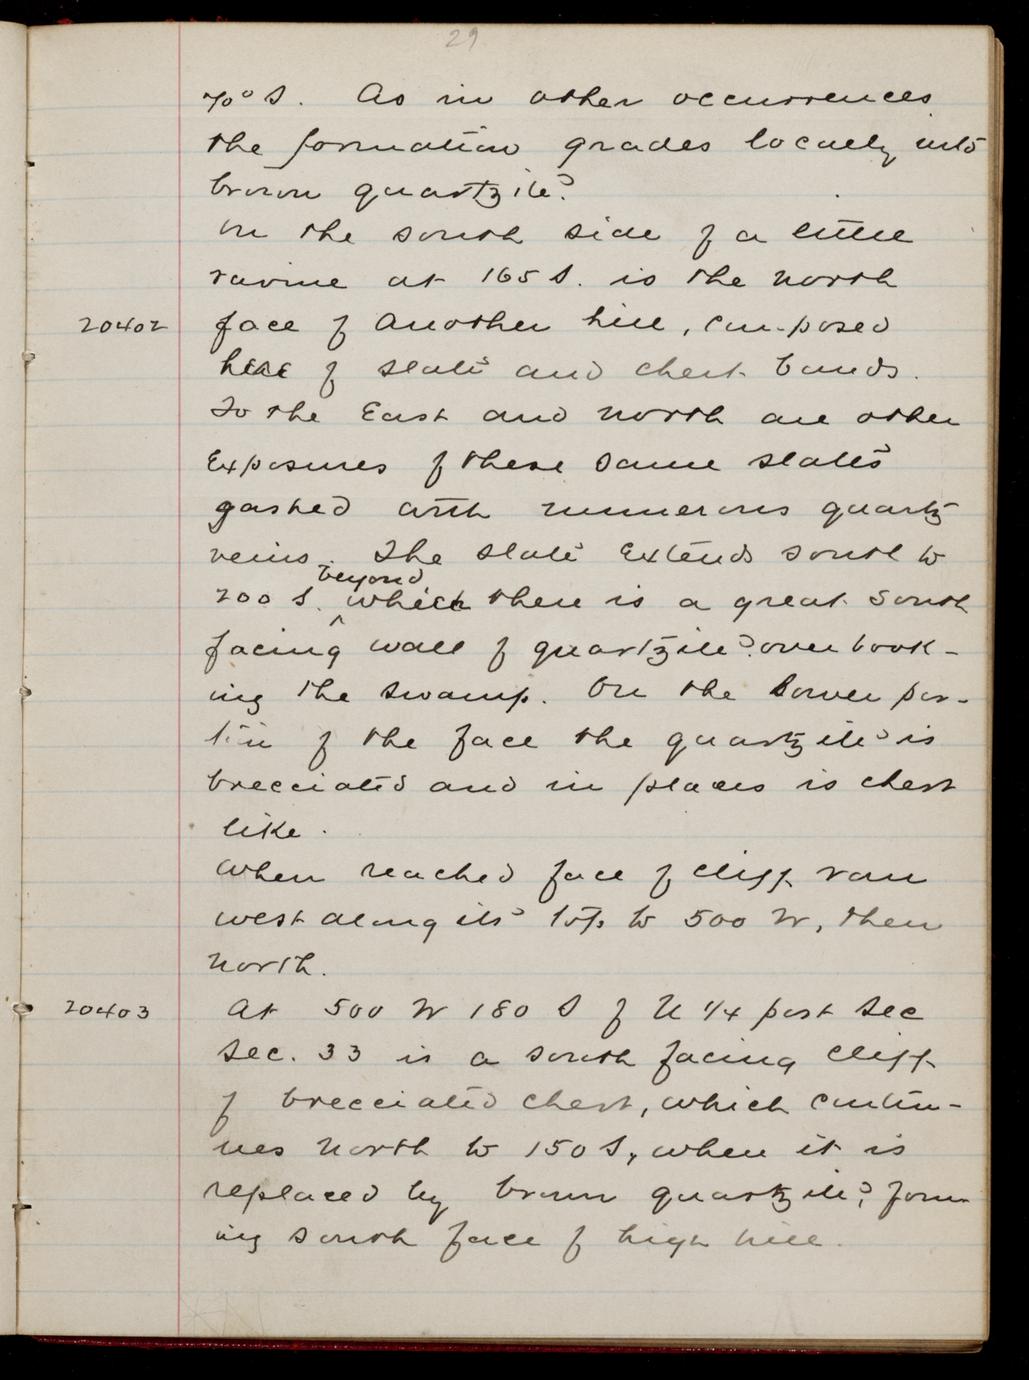 29
70° S. As in other occurrences
the formation grades locally into
brown quartzite?
On the south side of a little
ravine at 165 S. is the north
20402 face of another hill, composed
here of slate and chert bands.
To the East and north are other
Exposures of these same slates
gashed with numerous quartz
veins. The slate Extends south to
beyond
200 S. ^ which there is a great south
facing wall of quartzite? overlook-
ing the swamp. On the lower por-
tion of the face the quartzite? is
brecciated and in places is chert
like.
When reached face of cliff ran
west along its top to 500 W, then
north.
20403 At 500 W 180 S of N 1/4 post Sec
Sec. 33 is a south facing cliff
of brecciated chert, which contin-
ues north to 150 S, when it is
replaced by brown quartzite?, form-
ing south face of high hill.